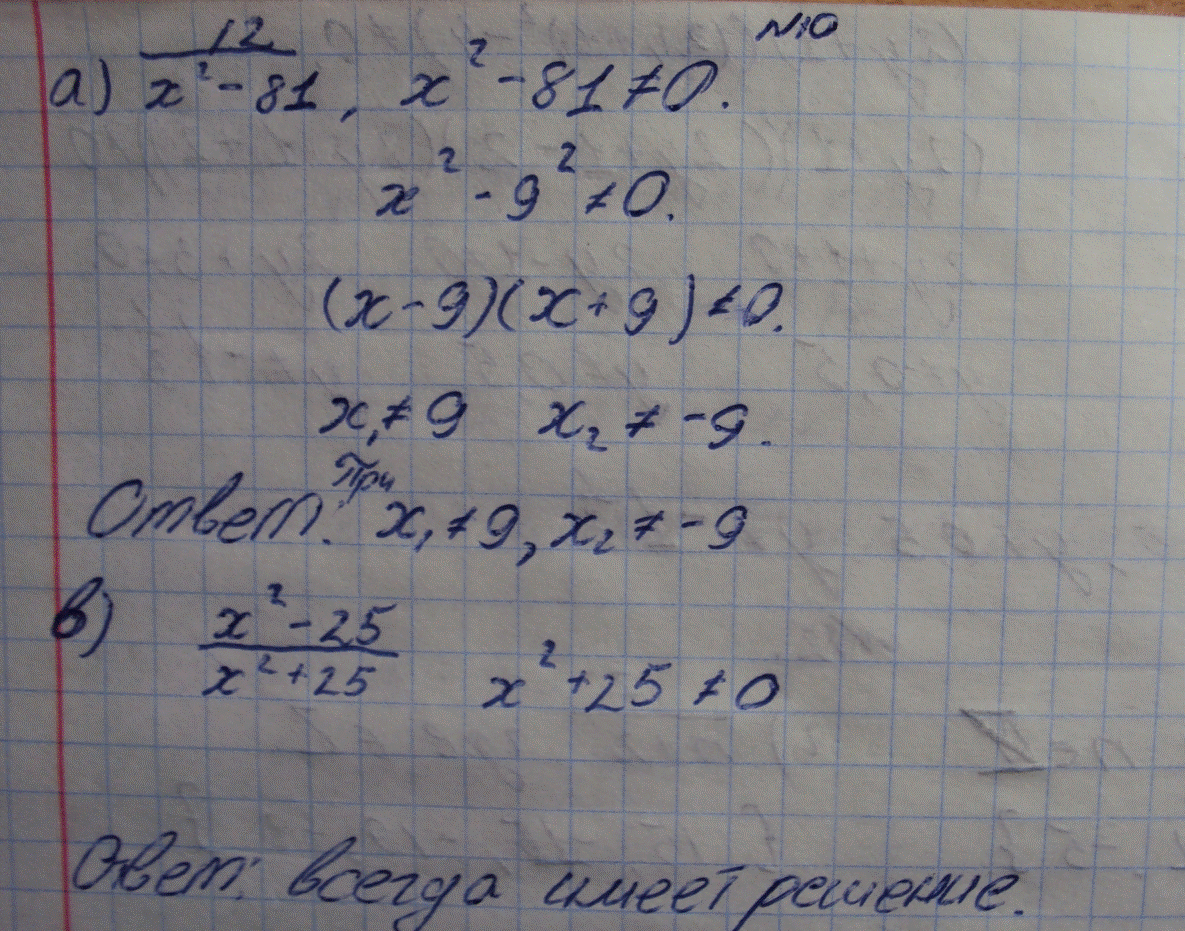 №10
а) 12/(x² - 81), x² - 81 ≠ 0.
x² - 9² ≠ 0.
(x - 9)(x + 9) ≠ 0.
x₁ ≠ 9 x₂ ≠ -9.
Ответ: При x₁ ≠ 9, x₂ ≠ -9
в) (x² - 25)/(x² + 25) x² + 25 ≠ 0
Ответ: всегда имеет решение.